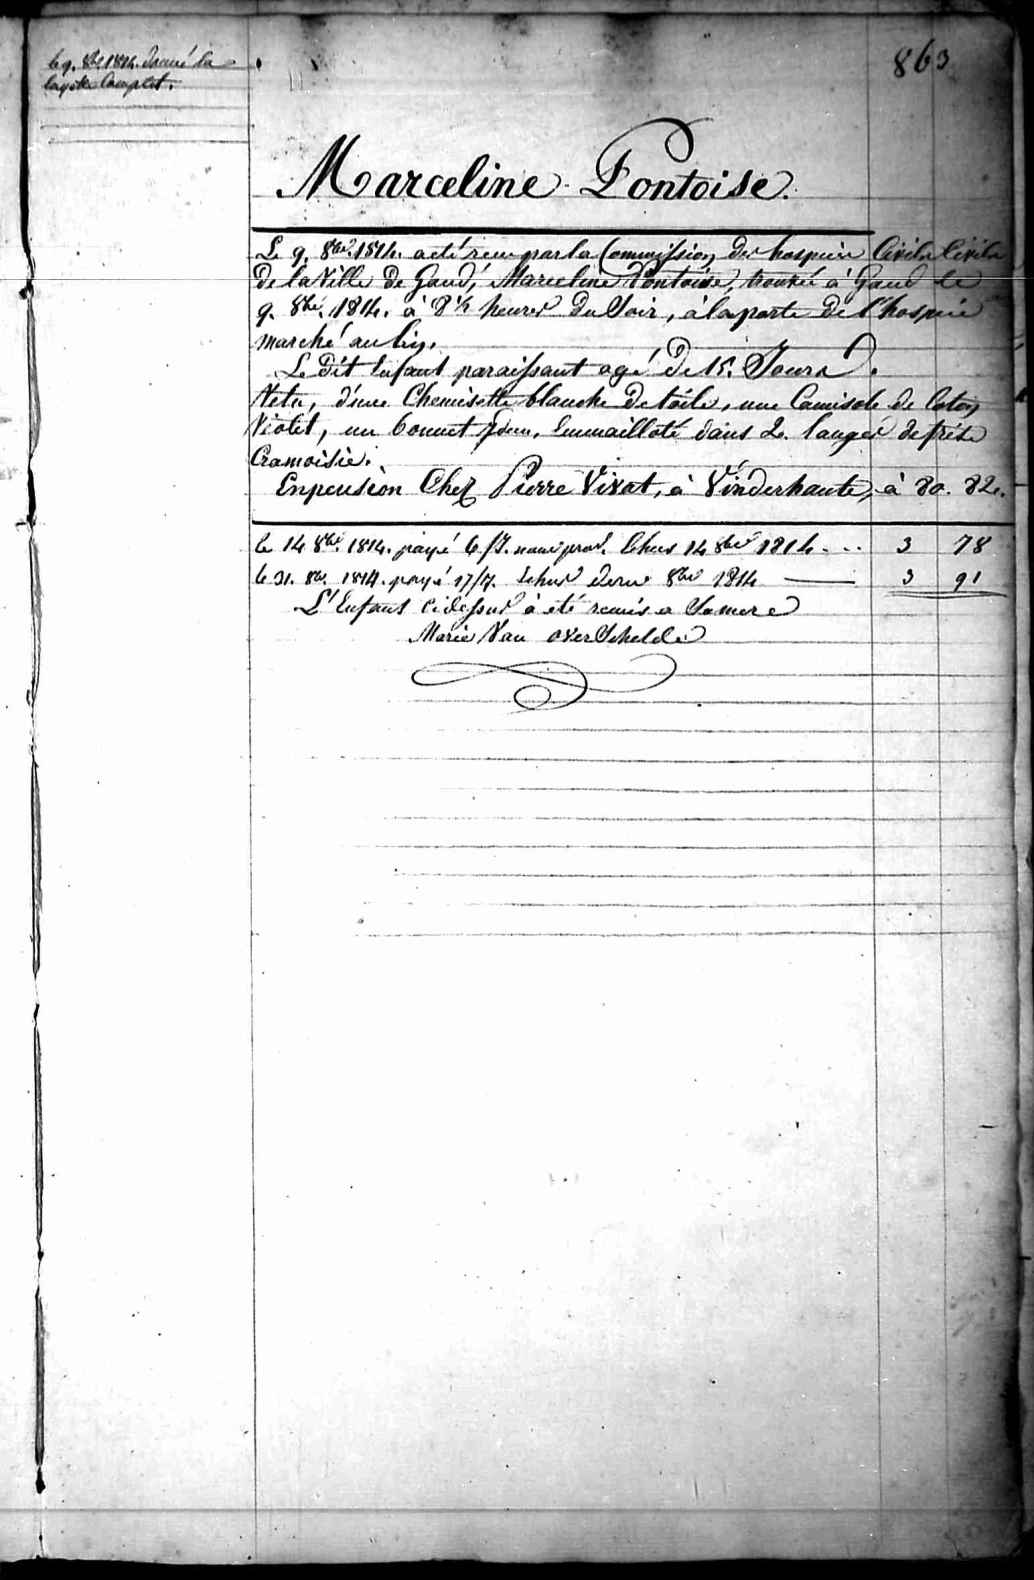 863
Le 9. 8bre 1814. donné la
layette Complet.
Marceline Pontoise.
Le 9. 8bre 1814. a été reçu par la Commission des hospices Civils Civils
De la Ville de Gand, Marceline Pontoise, trouvée à Gand le
9. 8bre. 1814. à 8 1/2 heures Du Soir, à la porte De l'hospice
marché au lin.
Le Dit Enfant paraissant agé De 15. Jours.
Vetu, d'une Chemisette blanche De toile, une Camisole de Coton
Violet, un bonnet idem, Emmailloté dans 2. langes de frise
Cramoisie.
En pension Chez Pierre Vivat, à Vinderhaute, à 80. 82.
Le 14 8bre. 1814. payé 6 fs. nour prov. Echus 14 8bre 1814 3 78
Le 31. 8bre 1814. payé 17/ Echus dern 8bre 1814 3 91
L'Enfant cidessus à été remis a Sa mere
Marie Van overSchelde